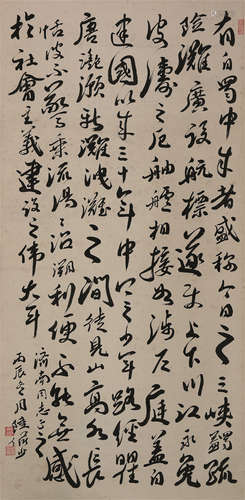 有自蜀中来者盛称今日之三峡蠲疏
险滩广设航标遂使上下川江永免
波涛之厄舳舻相接如涉户庭盖自
建国以来三十年中
瞿
唐滟滪新滩洩滩之间徒见山高水长
恬波不惊乘流溯沿利便不能无感
于社会主义建设之伟大耳
济南同志之
丙辰冬月陆俨少